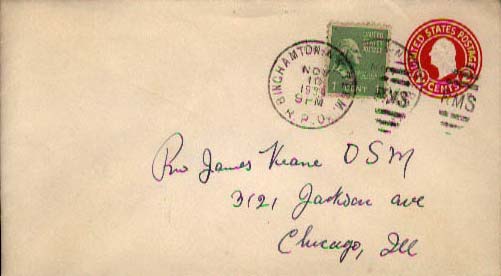 UNITED STATES POSTAGE
2 CENTS 2
UNITED
STATES
POSTAGE
1 CENT 1
BINGHAMTON
NOV
10
9 PM
R.P.O.
RMS
RMS
Rev James Keane OSM
3121 Jackson ave
Chicago, Ill